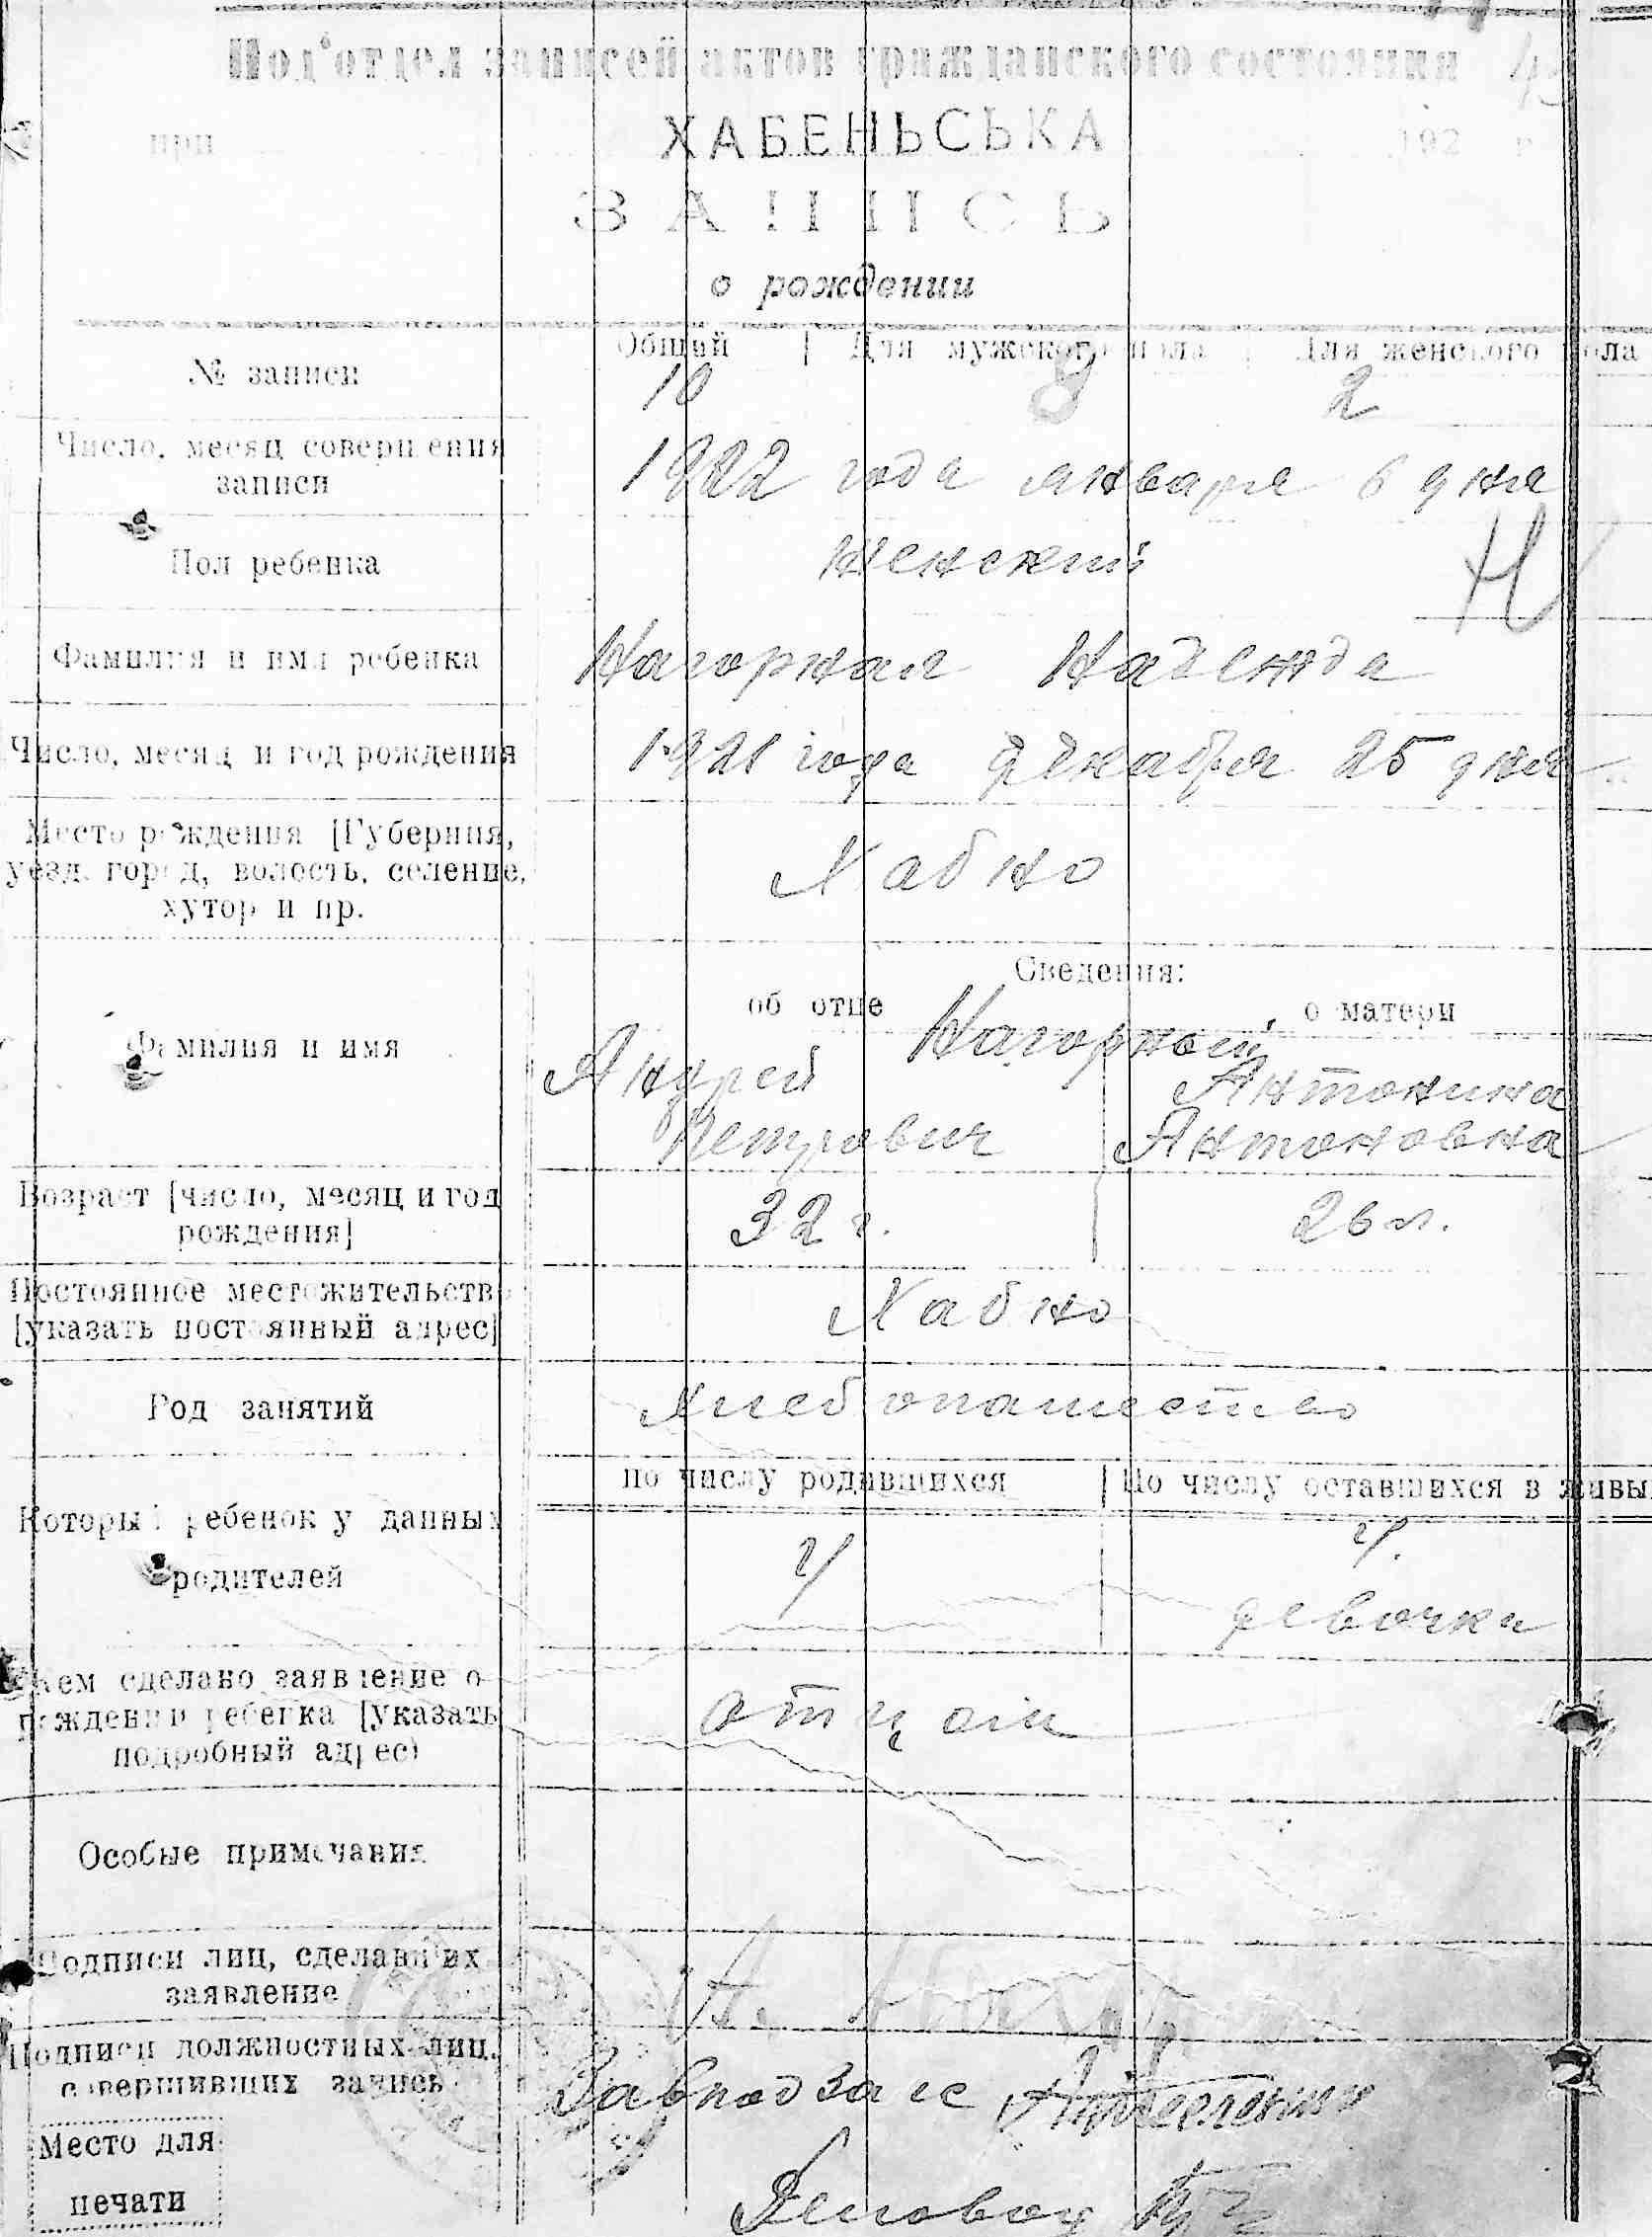 Под'отдел записей актов гражданского состояния 43
при ХАБЕНЬСЬКА 192 г
ЗАПИСЬ
о рождении
Общий | Для мужского пола | Для женского пола
№ записи 10 8 2
Число, месяц совершения
записи 1922 года января 6 дня
Пол ребенка женский Н
Фамилия и имя ребенка Нагорная Надежда
Число, месяц и год рождения 1921 года декабря 25 дня
Место рождения [Губерния,
уезд, город, волость, селение, Хабно
хутор и пр.
Сведения:
об отце о матери
Фамилия и имя Нагорный
Андрей Антонина
Петрович Антоновна
Возраст [число, месяц и год
рождения] 32 г. 26 л.
Постоянное местожительство
[указать постоянный адрес] Хабно
Род занятий Хлебопашество
по числу родившихся | По числу оставшихся в живы
Который ребенок у данных
родителей 4 4.
девочки
Кем сделано заявление о
рождении ребенка [указать
подробный адрес) отцом
Особые примечания
Подписи лиц, сделавших
заявление А.
Подписи должностных лиц,
совершивших запись Завподзагс
Место для
печати Деловод